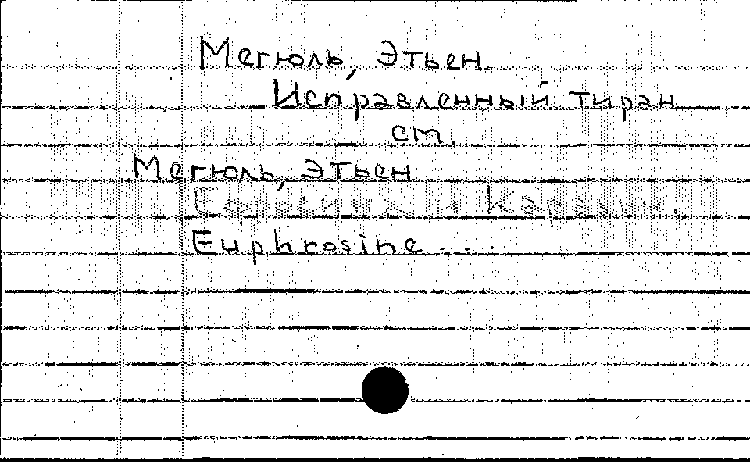 Мегюль, Этьен.
Исправленный тиран
см.
Мегюль, Этьен
Euphrosine ...